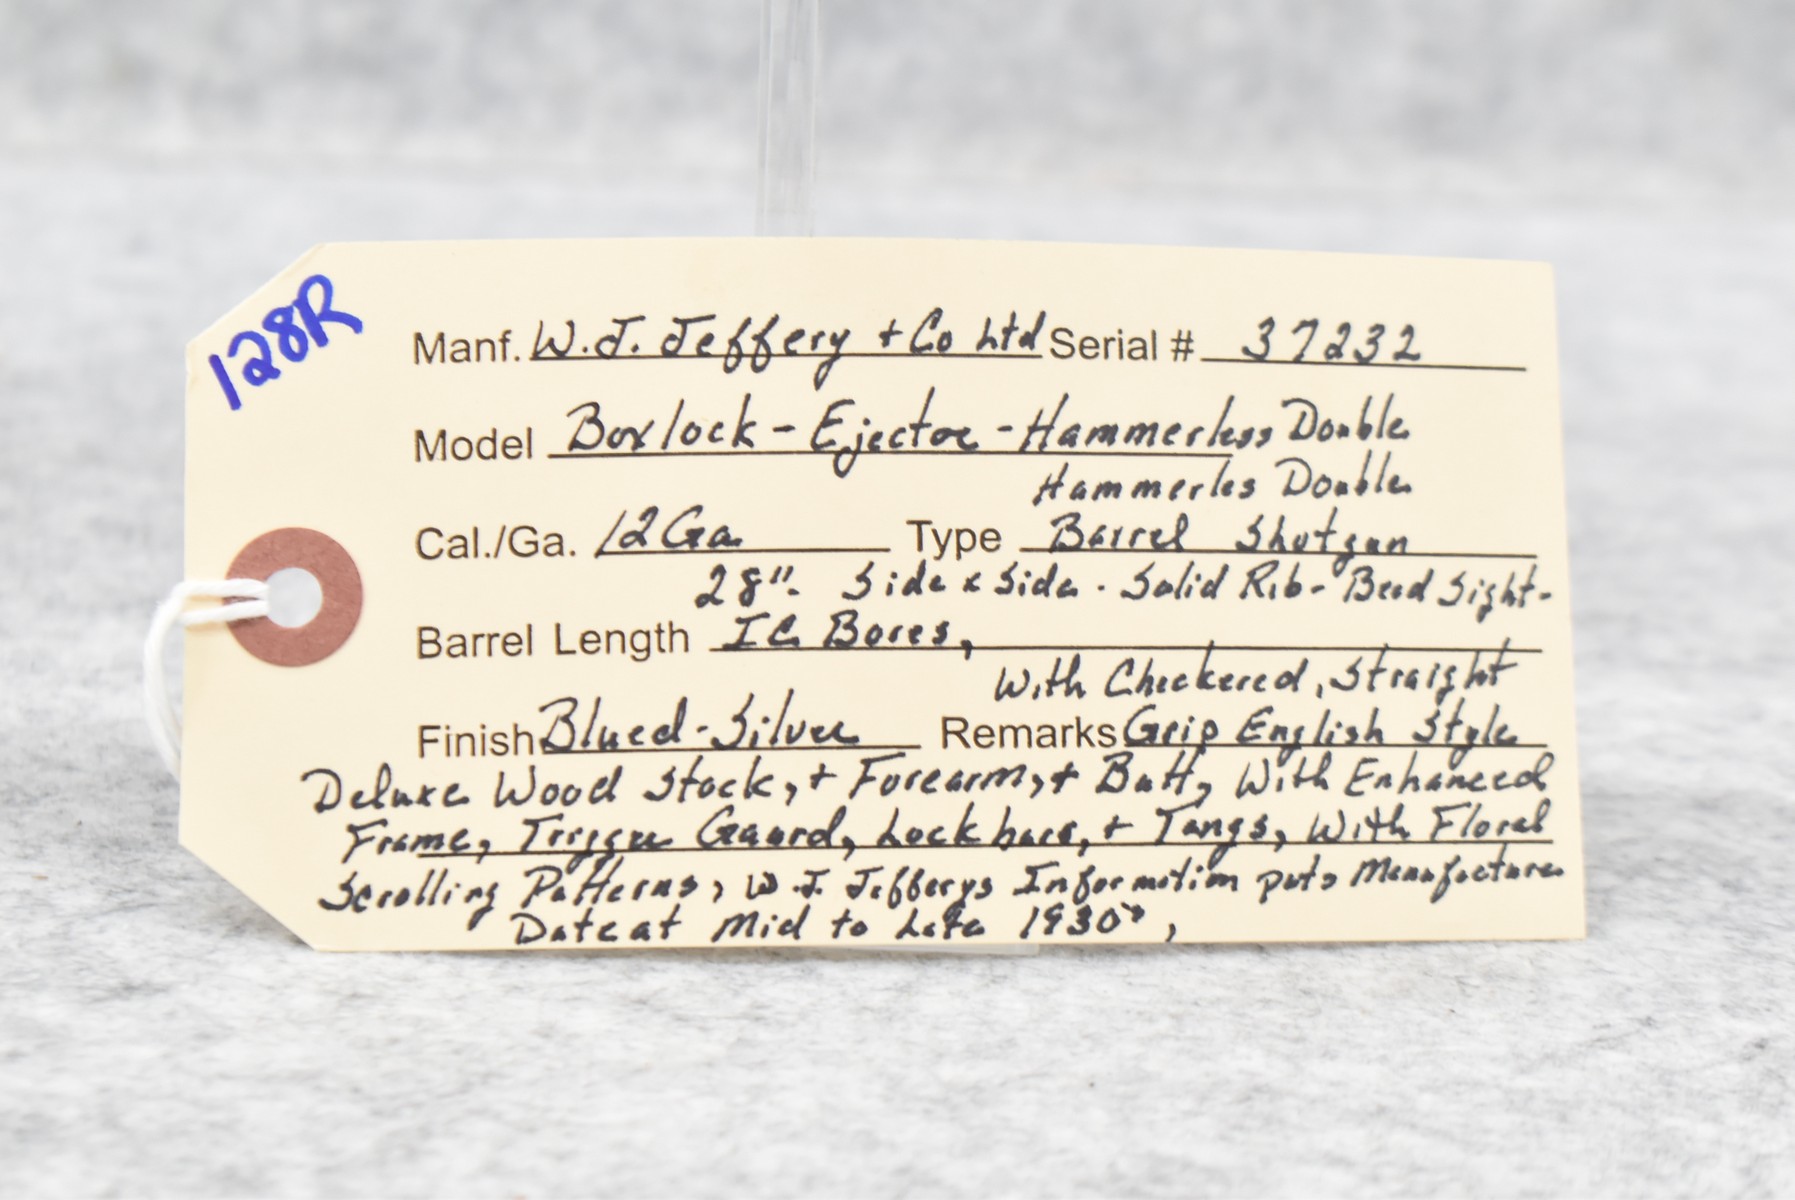 128R
Manf. W.J. Jeffery + Co Ltd Serial # 37232
Model Boxlock - Ejector - Hammerless Double
Hammerles Double
Cal./Ga. 12 Ga. Type Barrel Shotgun
28". Side x Side. Solid Rib - Bead Sight -
Barrel Length IC Bores,
With Checkered, Straight
Finish Blued - Silver Remarks Grip English Style
Deluxe Wood Stock, + Forearm, + Butt, With Enhanced
Frame, Trigger Gaurd, Lock bars, + Tangs, With Floral
Scrolling Patterns, W.J. Jefferys Information puts Manufacture
Date at Mid to Late 1930s,